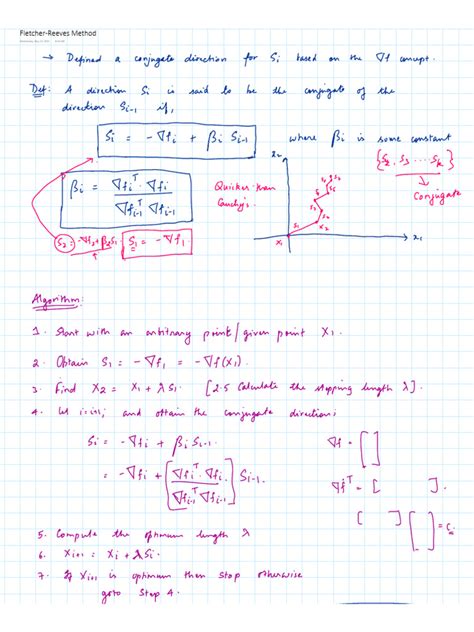 Fletcher-Reeves Method
→ Defined a conjugate direction for Si based on the ∇f concept.
Def: A direction Si is said to be the conjugate of the
direction Si-1 if,
Si = -∇fi + βi Si-1
where βi is some constant
{S2, S3 ... Sk}
Conjugate
βi = ∇fi^T · ∇fi / ∇fi-1^T ∇fi-1
Quicker than
Cauchy's.
x2
x1
X1
S1
X2
S2
S2 = -∇f2 + β2 S1
S1 = -∇f1
Algorithm:
1. Start with an arbitrary point/given point X1.
2. Obtain S1 = -∇f1 = -∇f(X1).
3. Find X2 = X1 + λ S1. [2.5 Calculate the stepping length λ].
4. Let i=i+1; and obtain the conjugate direction;
Si = -∇fi + βi Si-1.
= -∇fi + (∇fi^T · ∇fi / ∇fi-1^T ∇fi-1) Si-1.
∇f = [ ]
∇f^T = [ ].
[ ] [ ] = c.
5. Compute the optimum length λ
6. Xi+1 = Xi + λ Si.
7. If Xi+1 is optimum then stop otherwise
goto Step 4.